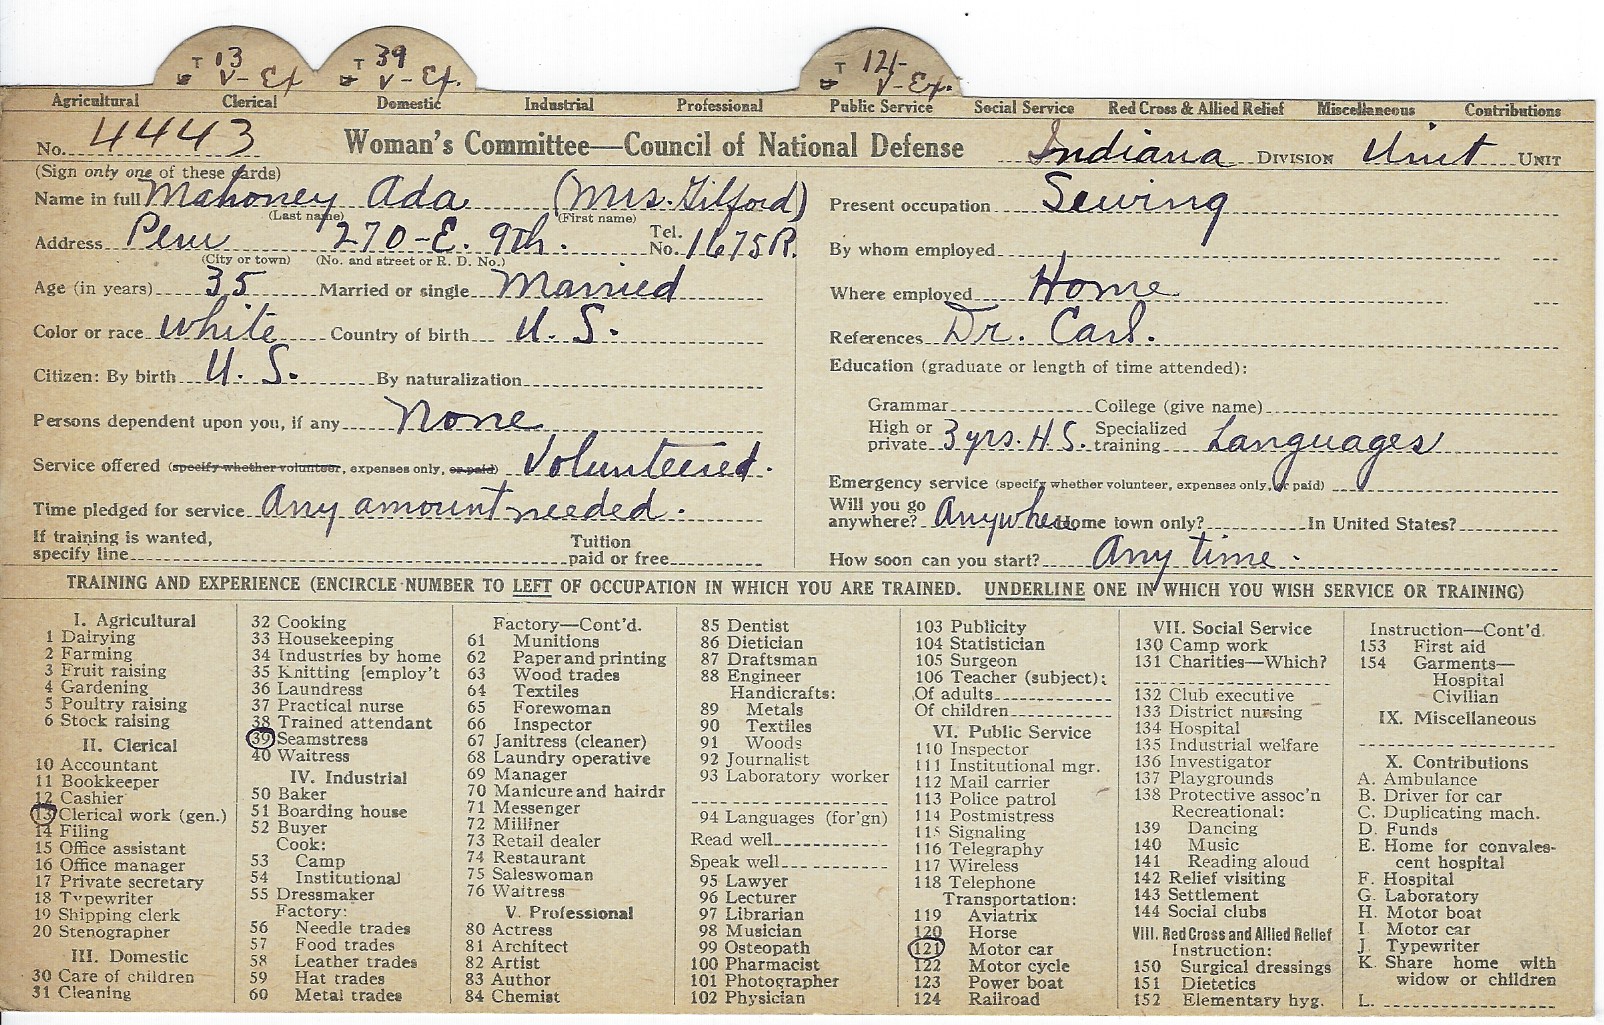 T 13 V-Ex
T 39 V-Ex.
T 121- V-Ex.
Agricultural Clerical Domestic Industrial Professional Public Service Social Service Red Cross & Allied Relief Miscellaneous Contributions
No. 4443 Woman's Committee—Council of National Defense Indiana DIVISION Unit UNIT
(Sign only one of these cards)
Name in full Mahoney Ada (Mrs. Gilford)
(Last name) (First name)
Address Peru 270-E. 9th. Tel. No. 1675R.
(City or town) (No. and street or R. D. No.)
Age (in years) 35 Married or single Married
Color or race White Country of birth U. S.
Citizen: By birth U. S. By naturalization
Persons dependent upon you, if any None
Service offered (specify whether volunteer, expenses only, or paid) Volunteered.
Time pledged for service Any amount needed.
If training is wanted, specify line Tuition paid or free
Present occupation Sewing
By whom employed
Where employed Home
References Dr. Carl.
Education (graduate or length of time attended):
Grammar College (give name)
High or private 3 yrs. H.S. Specialized training Languages
Emergency service (specify whether volunteer, expenses only, or paid)
Will you go anywhere? Anywhere Home town only? In United States?
How soon can you start? Any time.
TRAINING AND EXPERIENCE (ENCIRCLE NUMBER TO LEFT OF OCCUPATION IN WHICH YOU ARE TRAINED. UNDERLINE ONE IN WHICH YOU WISH SERVICE OR TRAINING)
I. Agricultural
1 Dairying
2 Farming
3 Fruit raising
4 Gardening
5 Poultry raising
6 Stock raising
II. Clerical
10 Accountant
11 Bookkeeper
12 Cashier
13 Clerical work (gen.)
14 Filing
15 Office assistant
16 Office manager
17 Private secretary
18 Typewriter
19 Shipping clerk
20 Stenographer
III. Domestic
30 Care of children
31 Cleaning
32 Cooking
33 Housekeeping
34 Industries by home
35 Knitting [employ't
36 Laundress
37 Practical nurse
38 Trained attendant
39 Seamstress
40 Waitress
IV. Industrial
50 Baker
51 Boarding house
52 Buyer
Cook:
53 Camp
54 Institutional
55 Dressmaker
Factory:
56 Needle trades
57 Food trades
58 Leather trades
59 Hat trades
60 Metal trades
Factory—Cont'd.
61 Munitions
62 Paper and printing
63 Wood trades
64 Textiles
65 Forewoman
66 Inspector
67 Janitress (cleaner)
68 Laundry operative
69 Manager
70 Manicure and hairdr
71 Messenger
72 Milliner
73 Retail dealer
74 Restaurant
75 Saleswoman
76 Waitress
V. Professional
80 Actress
81 Architect
82 Artist
83 Author
84 Chemist
85 Dentist
86 Dietician
87 Draftsman
88 Engineer
Handicrafts:
89 Metals
90 Textiles
91 Woods
92 Journalist
93 Laboratory worker
94 Languages (for'gn)
Read well
Speak well
95 Lawyer
96 Lecturer
97 Librarian
98 Musician
99 Osteopath
100 Pharmacist
101 Photographer
102 Physician
103 Publicity
104 Statistician
105 Surgeon
106 Teacher (subject):
Of adults
Of children
VI. Public Service
110 Inspector
111 Institutional mgr.
112 Mail carrier
113 Police patrol
114 Postmistress
115 Signaling
116 Telegraphy
117 Wireless
118 Telephone
Transportation:
119 Aviatrix
120 Horse
121 Motor car
122 Motor cycle
123 Power boat
124 Railroad
VII. Social Service
130 Camp work
131 Charities—Which?
132 Club executive
133 District nursing
134 Hospital
135 Industrial welfare
136 Investigator
137 Playgrounds
138 Protective assoc'n
Recreational:
139 Dancing
140 Music
141 Reading aloud
142 Relief visiting
143 Settlement
144 Social clubs
VIII. Red Cross and Allied Relief
Instruction:
150 Surgical dressings
151 Dietetics
152 Elementary hyg.
Instruction—Cont'd.
153 First aid
154 Garments—
Hospital
Civilian
IX. Miscellaneous
X. Contributions
A. Ambulance
B. Driver for car
C. Duplicating mach.
D. Funds
E. Home for convales-
cent hospital
F. Hospital
G. Laboratory
H. Motor boat
I. Motor car
J. Typewriter
K. Share home with
widow or children
L.